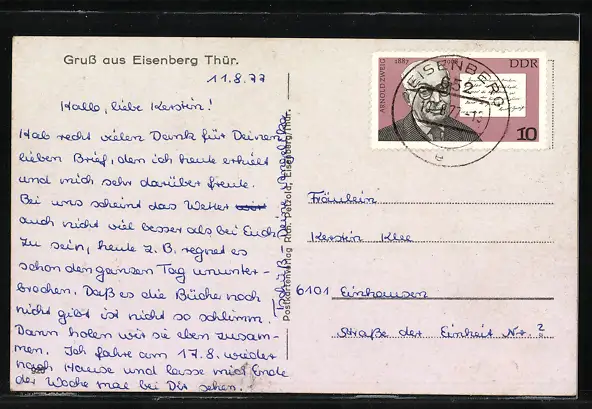 Gruß aus Eisenberg Thür.
11.8.77
Hallo, liebe Kerstin!
Hab recht vielen Dank für Deinen
lieben Brief, den ich heute erhielt
und mich sehr darüber freute.
Bei uns scheint das Wetter
auch nicht viel besser als bei Euch
zu sein, heute z. B. regnet es
schon den ganzen Tag ununter-
brochen. Daß es die Bücher noch
nicht gibt ist nicht so schlimm.
Dann holen wir sie eben zusam-
men. Ich fahre am 17.8. wieder
nach Hause und lasse mich Ende
der Woche mal bei Dir sehen.
Tschüß - Deine
Postkartenverlag Rich. Petzold, Eisenberg/Thür.
ARNOLD ZWEIG
1887
1968
DDR
10
EISENBERG
Fräulein
Kerstin Klee
6101 Einhausen
Straße der Einheit Nr. 2